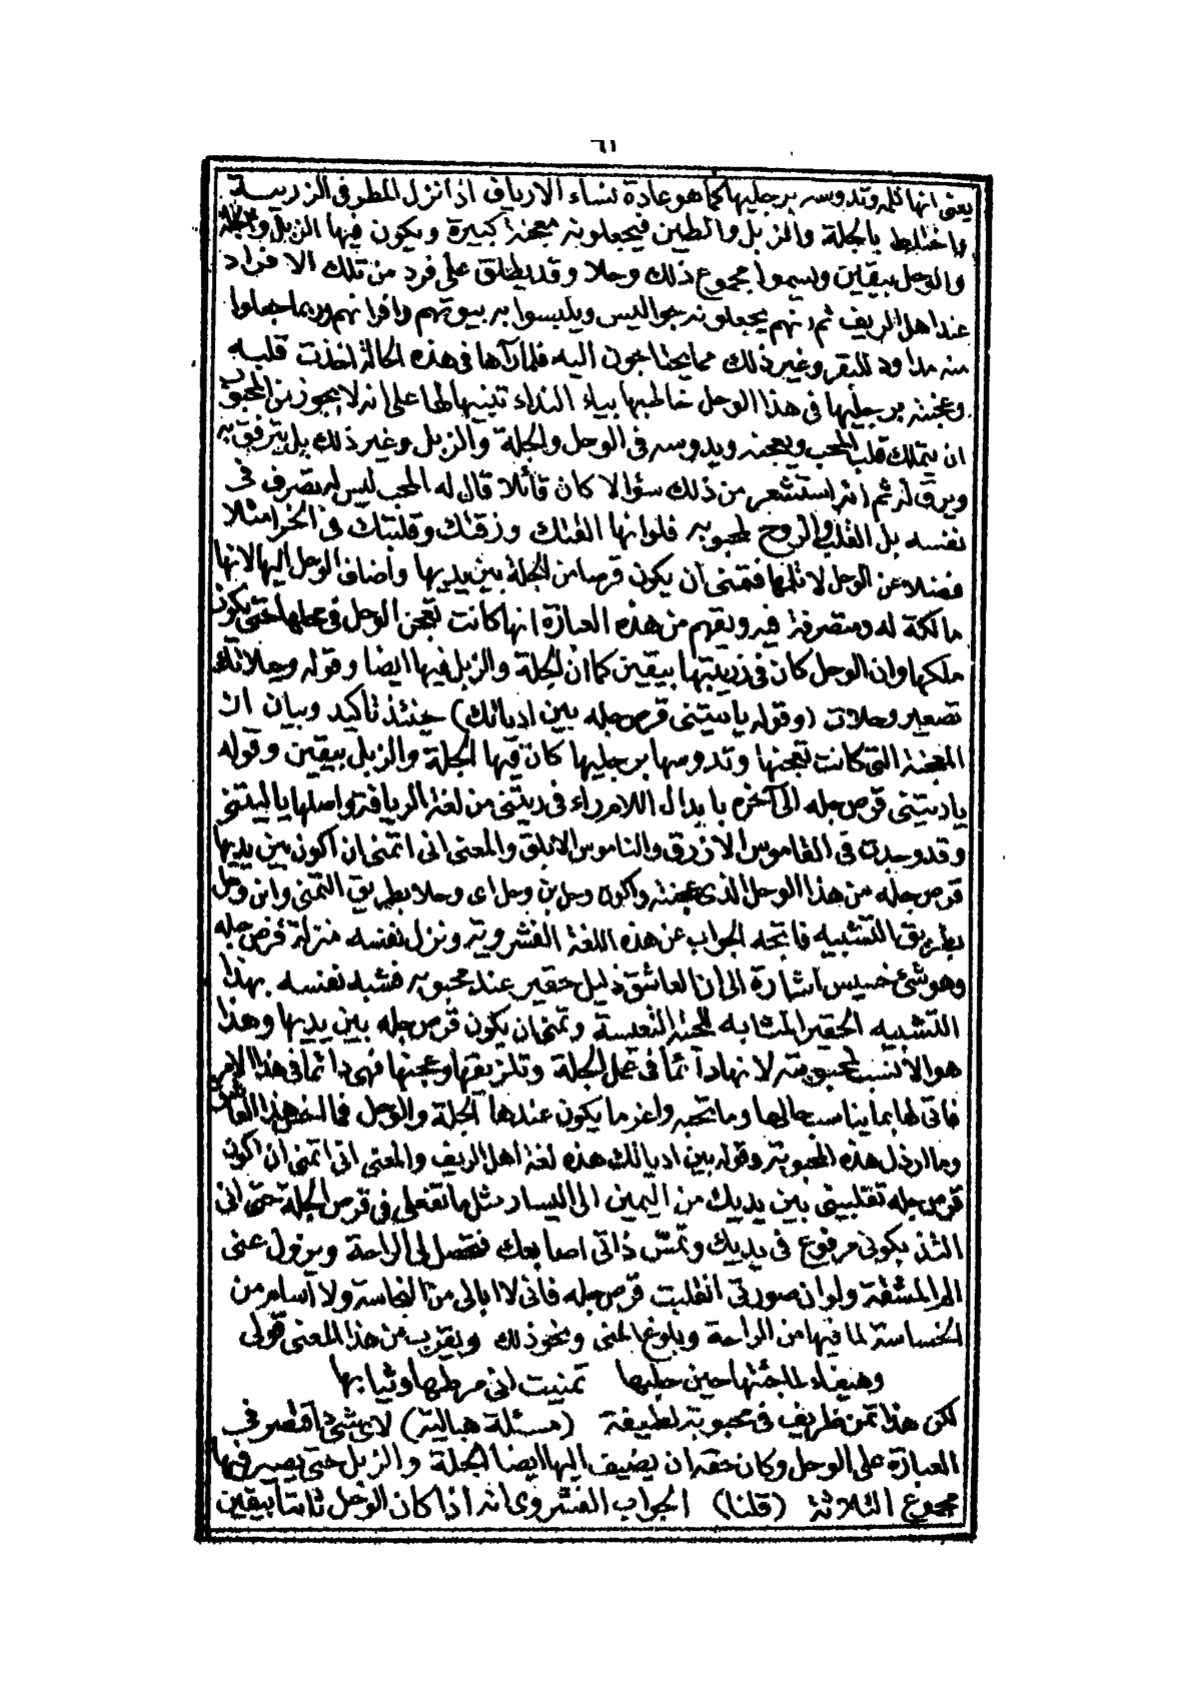 ٦١
يعنى انها تلمه وتدوسه برجليها كما هو عادة نساء الارياف اذا نزل المطر فى الزريبة
واختلط بالجلة والزبل والطين فيجعلونه معجنة كبيرة ويكون فيها الزبل والجلة
والوحل بيقين ويسموا مجموع ذلك وحلا وقد يطلق على فرد من تلك الافراد
عند اهل الريف ثم انهم يجعلونه جواليس ويلبسوا به بيوتهم وافرانهم وربما جعلوا
منه مداود للبقر وغير ذلك مما يحتاجون اليه فلما رآها فى هذه الحالة اخذت قلبه
وعجنته برجليها فى هذا الوحل خاطبها بياء النداء تنبيها لها على انه لا يجوز من المحبوب
ان يتملك قلب المحب ويعجنه ويدوسه فى الوحل والجلة والزبل وغير ذلك بل يترفق به
ويرق له ثم انه استشعر من ذلك سؤالا كان قائلا قال له المحب ليس له تصرف فى
نفسه بل القلب والروح لمحبوبه فلو انها القتك وزقتك وقلبتك فى الخرا مثلا
فضلا عن الوحل لا تلمها فتمنى ان يكون قرصا من الجلة بين يديها وأضاف الوحل اليها لانها
مالكة له ومتصرفة فيه ويفهم من هذه العبارة انها كانت تعجن الوحل فى محلها حتى يكون
ملكها وان الوحل كان فى زريبتها بيقين كما ان الجلة والزبل فيها ايضا وقوله وحيلاتك
تصغير وحلات (وقوله ياريتنى قرص جله بين اديانك) حينئذ تاكيد وبيان ان
المعجنة التى كانت تعجنها وتدوسها برجليها كان فيها الجلة والزبل بيقين وقوله
ياريتنى قرص جله الى آخره بابدال اللام راء فى ريتنى من لغة الريافة واصلها ياليتنى
وقد وجدت فى القاموس الازرق والناموس الابلق والمعنى انى اتمنى ان اكون بين يديها
قرص جله من هذا الوحل الذى عجنته واكون وحل بن وحل اى وحلا بطريق التمنى وابن وحل
بطريق التشبيه فاتجه الجواب عن هذه اللغة الفشروية ونزل نفسه منزلة قرص جله
وهو شئ خسيس اشارة الى ان العاشق ذليل حقير عند محبوبه فشبه نفسه بهذا
التشبيه الحقير المشابه للجنة التعيسة وتمنى ان يكون قرص جله بين يديها وهذا
هو الانسب لمحبوبته لانها دائما فى عمل الجلة وتلزيقها وعجنها فهى دائما فى هذا الامر
فاتى لها بما يناسب حالها وما تحبه واعز ما يكون عندها الجلة والوحل فما انحس هذا العاشق
وما ارذل هذه المحبوبة وقوله بين اديانك هذه لغة اهل الريف والمعنى انى اتمنى ان اكون
قرص جله تقلبينى بين يديك من اليمين الى اليسار مثل ما تفعلى فى قرص الجلة حتى انى
التذ بكونى مرفوع فى يديك وتمس ذاتى اصابعك فتحصل لى الراحة ويزول عنى
الم المشقة ولو ان صورتى انقلبت قرص جله فانى لا ابالى من النجاسة ولا أسلم من
الخساسة لما فيها من الراحة وبلوغ المنى ونحو ذلك ويقرب من هذا المعنى قولى
وهيفاء لما جئتها حين حطيها تمنيت انى مرطها وثيابها
لكن هذا تمن ظريف فى محبوبة لطيفة (مسئلة هبالية) لاى شئ اقتصر فى
العبارة على الوحل وكان حقه ان يضيف اليها ايضا الجلة والزبل حتى يصير فيها
مجموع الثلاثة (قلنا) الجواب الفشروى انه اذا كان الوحل ثابتا بيقين